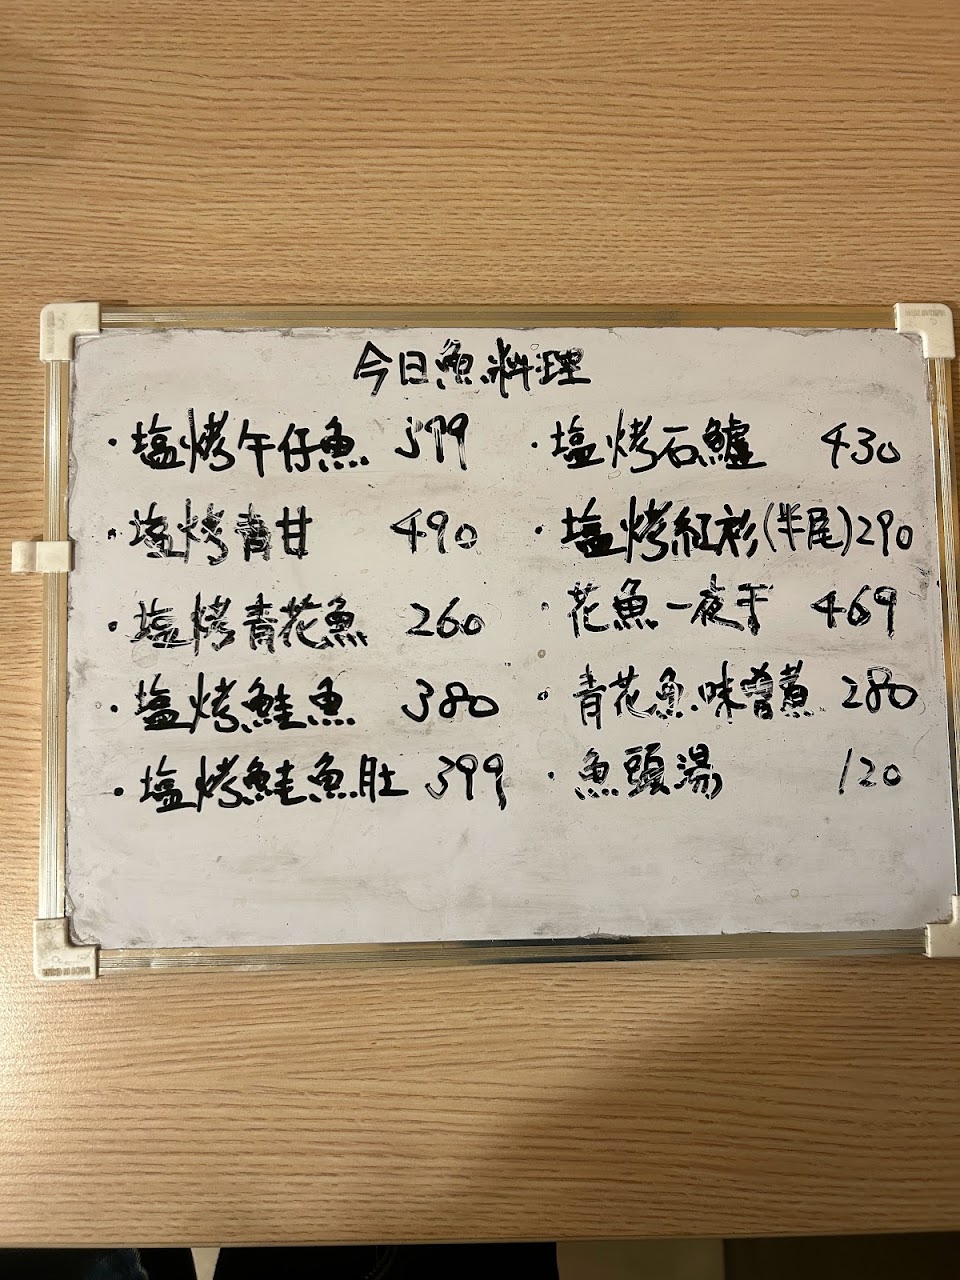 今日魚料理
·塩烤午仔魚 399
·塩烤青甘 490
·塩烤青花魚 260
·塩烤鮭魚 380
·塩烤鮭魚肚 399
·塩烤石鱸 430
·塩烤紅衫(半尾)290
·花魚一夜干 469
·青花魚味噌煮 280
·魚頭湯 120